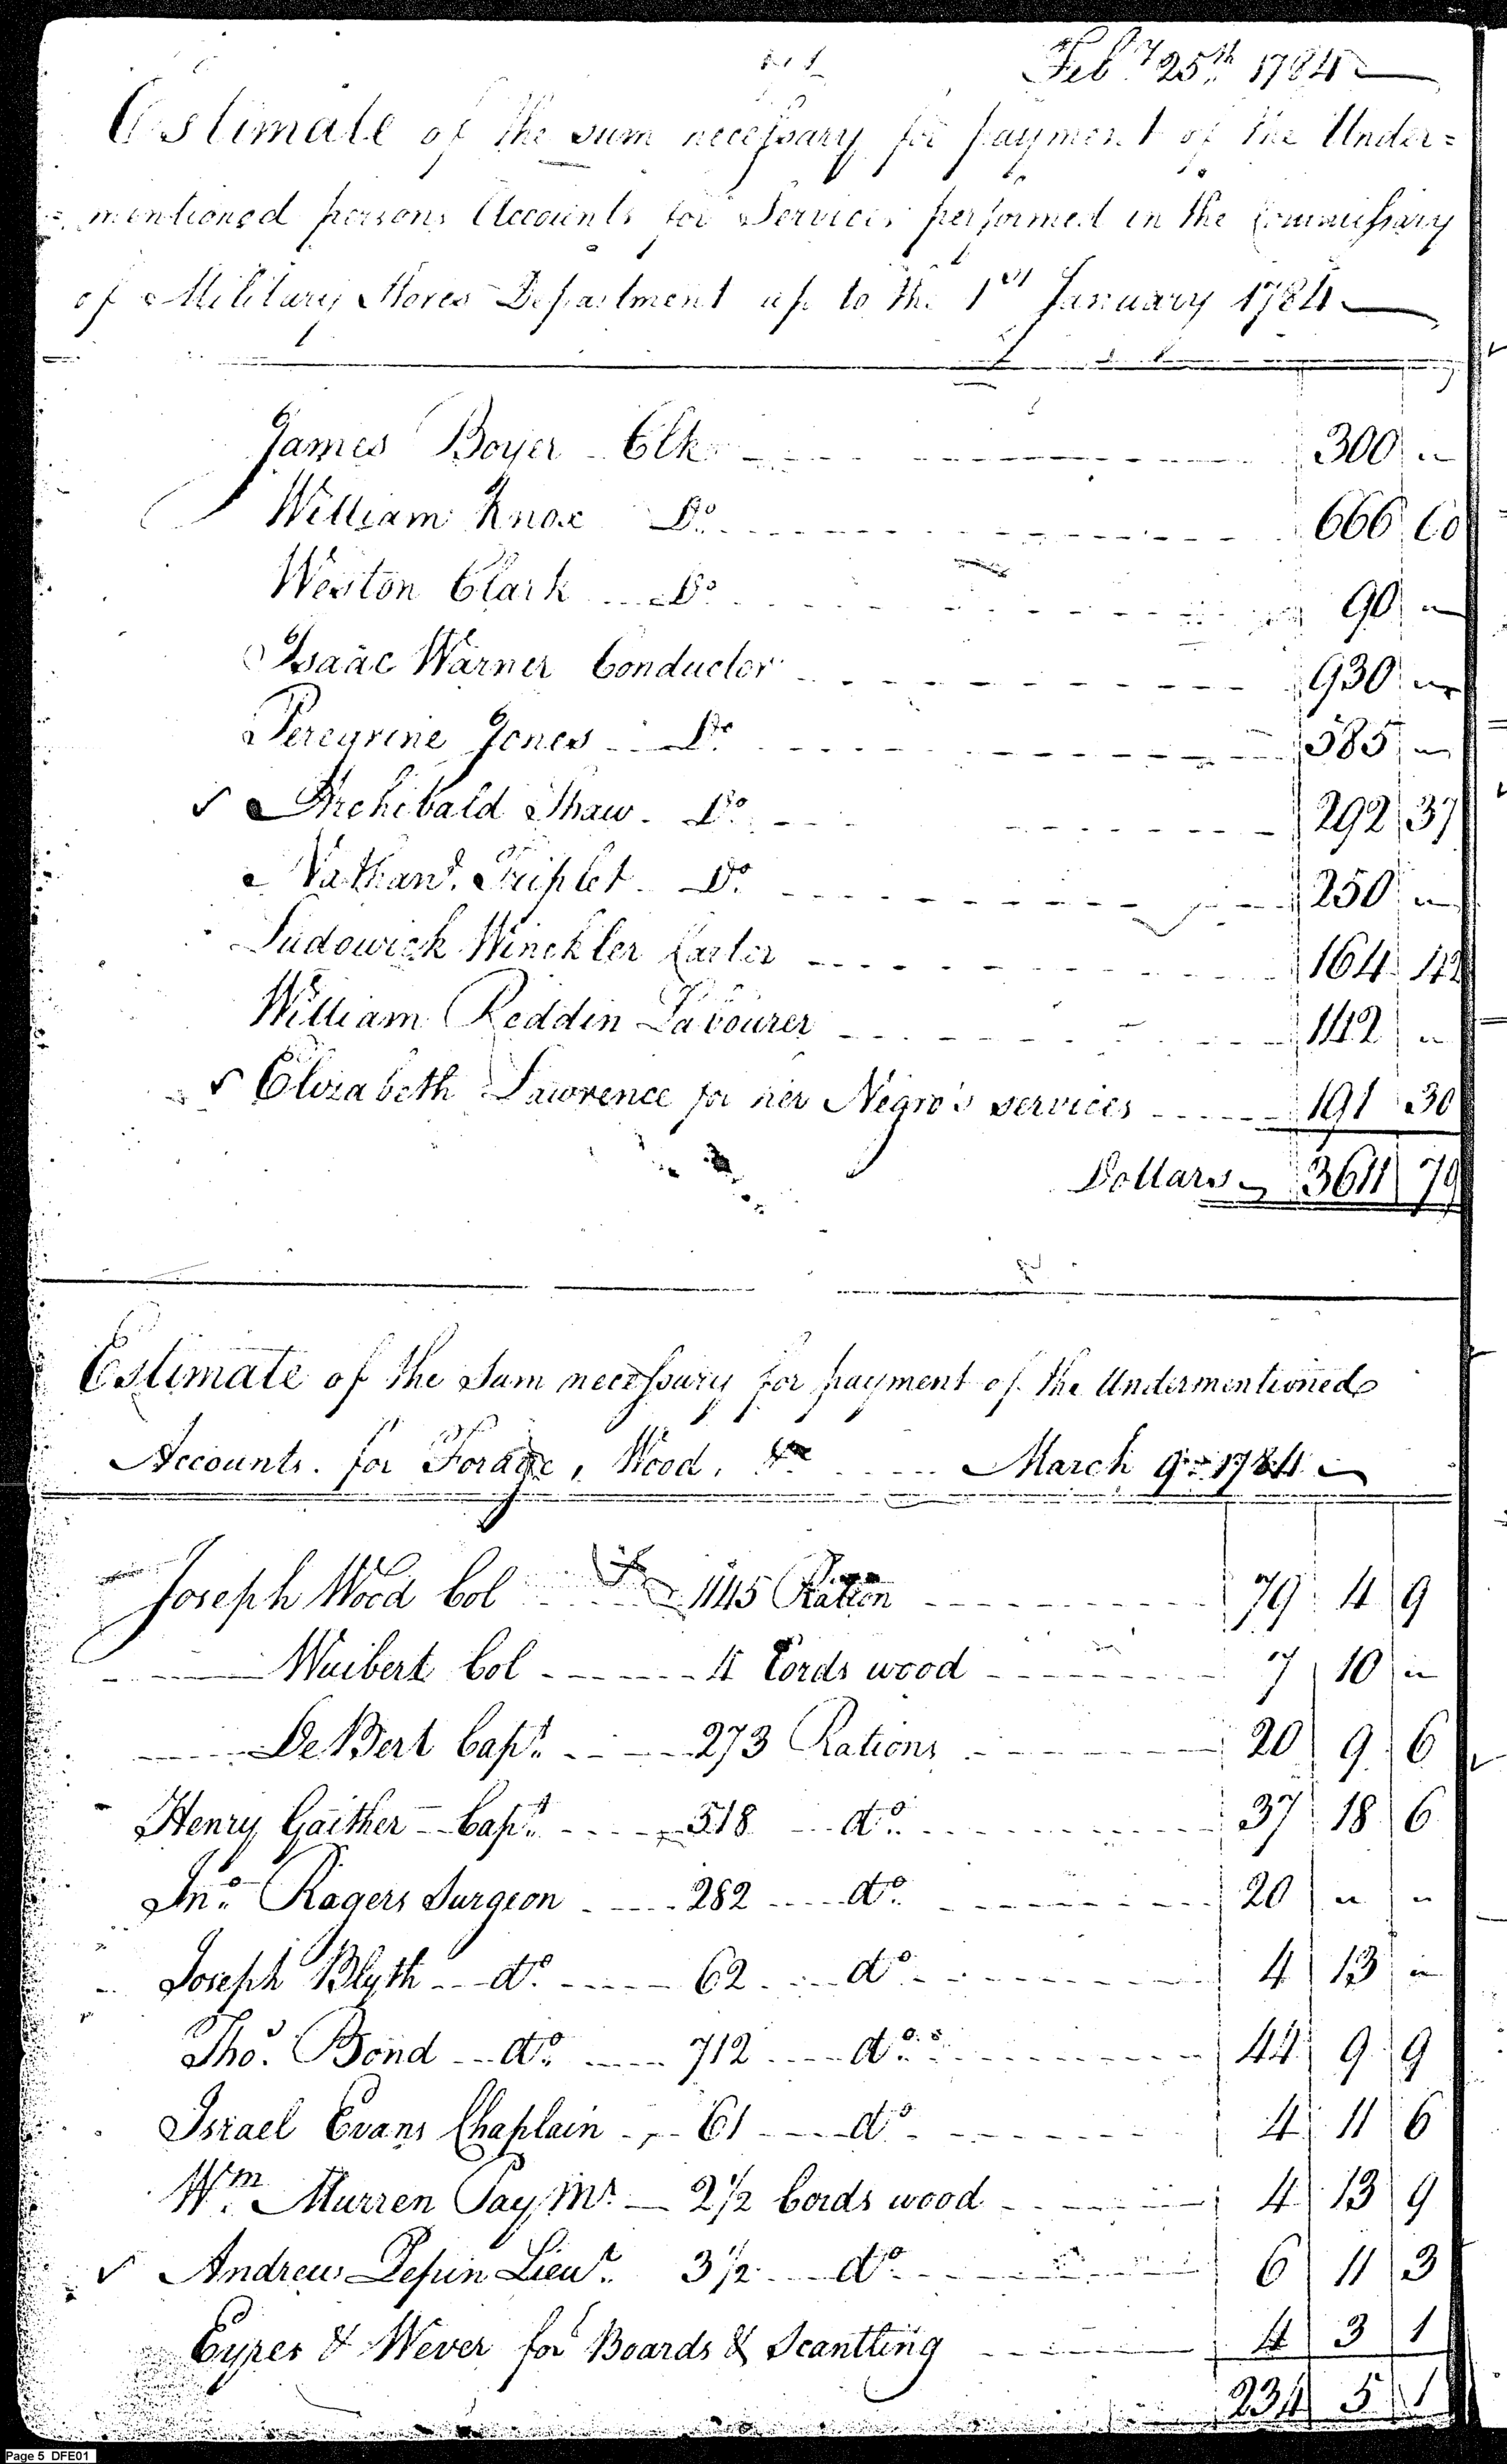 Feb.y 25th 1784
Estimate of the sum necessary for payment of the Under=
=mentioned persons Accounts for Services performed in the Commissary
of Military Stores Department up to the 1st January 1784
James Boyer Clk 300 "
William Knox Do. 666 60
Weston Clark Do. 90 "
Isaac Warner Conductor 930 "
Peregrine Jones Do. 585 "
✓ Archibald Shaw Do. 292 37
Nathanl. Triplet Do. 250 "
Ludowick Winckler Carter 164 42
William Reddin Labourer 142 "
✓ Elizabeth Lawrence for her Negro's services 191 30
Dollars 3611 79
Estimate of the Sum necessary for payment of the Undermentioned
Accounts for Forage, Wood, &c March 9th 1784
Joseph Wood Col 1145 Ration 79 4 9
Wuibert Col 4 Cords wood 7 10 "
De Bert Capt. 273 Rations 20 9 6
Henry Gaither Capt. 518 do. 37 18 6
Jno. Rogers Surgeon 282 do. 20 " "
Joseph Blyth do. 62 do. 4 13 "
Tho. Bond do. 712 do. 44 9 9
Israel Evans Chaplain 61 do. 4 11 6
Wm. Murren Pay Mr. 2 1/2 Cords wood 4 13 9
✓ Andrew Lepin Lieut. 3 1/2 do. 6 11 3
Eyres & Wever for Boards & Scantling 4 3 1
234 5 1
Page 5 DFE01